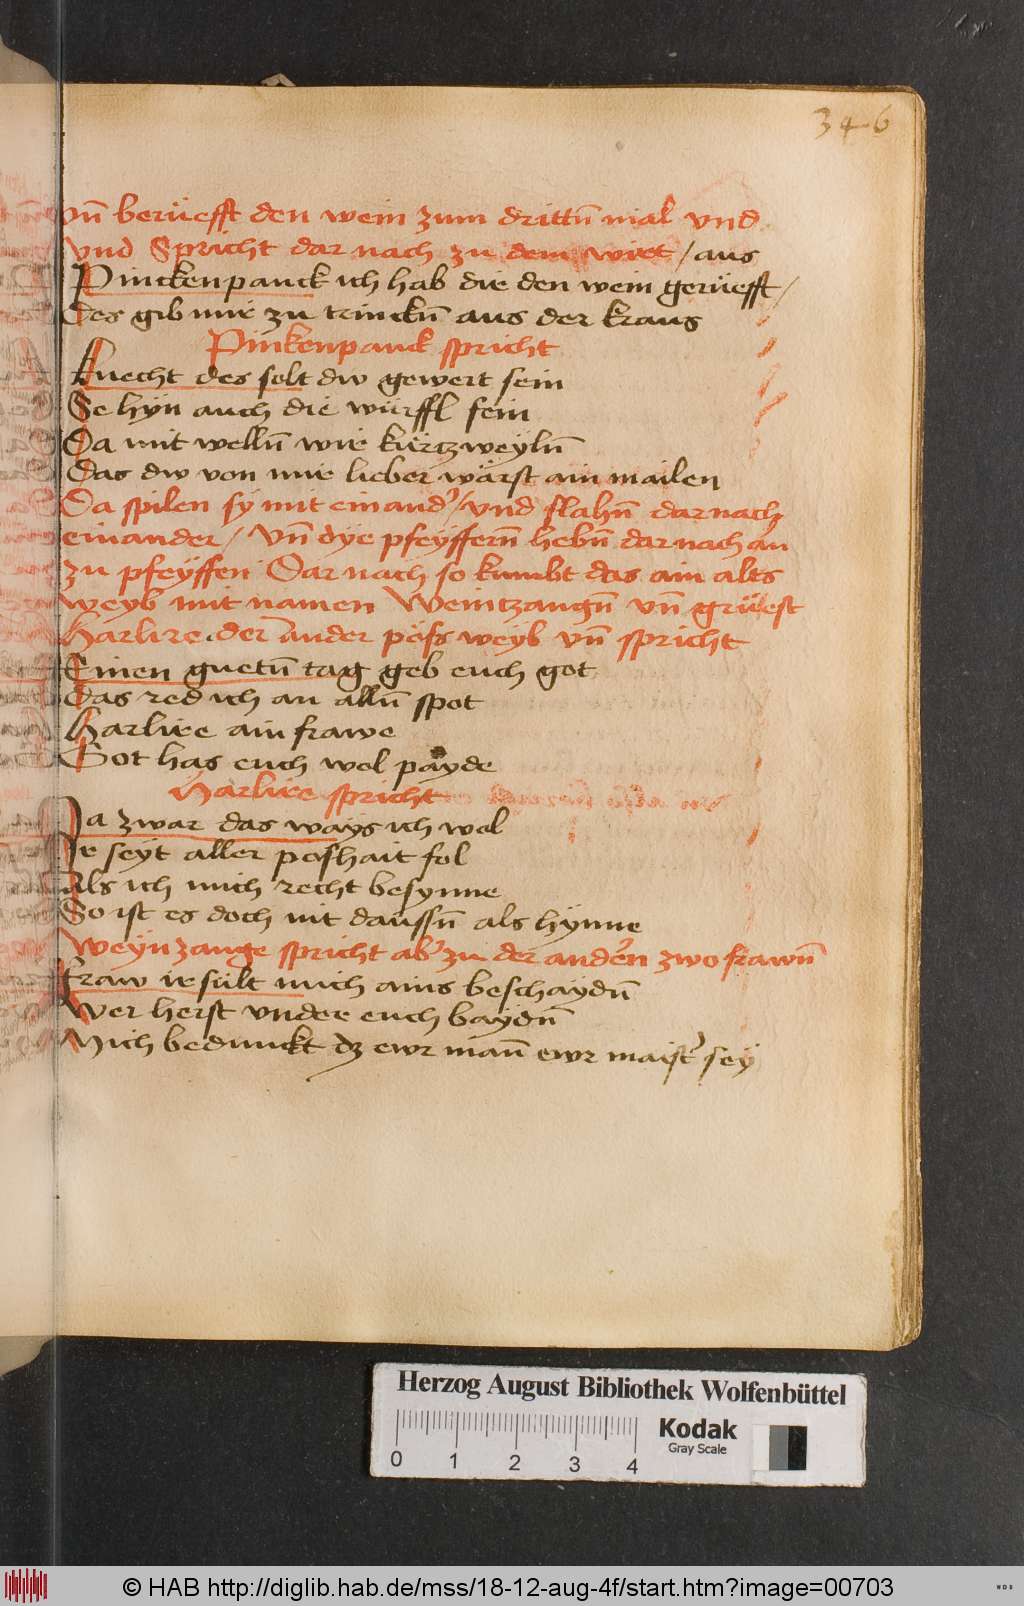 346
vn̄ berüefft den wein zum drittn̄ mal vnd
vnd Spricht dar nach zu dem wirt / aus
Pinckenpanck ich hab dir den wein gerüefft /
des gib mir zu trinckn̄ aus der kraus
Pinkenpanck spricht
Knecht des solt dw gewert sein
Se hyn auch die würffl fein
Da mit welln̄ wir kürtzweyln̄
das dw von mir lieber wärst ain mailen
Da spilen sy mit einand' / vnd slahn̄ dar nach
einander / vn̄ dye pfeyffern̄ hebn̄ dar nach an
zu pfeyffen Dar nach so kumbt das ain alts
weyb mit namen Weintzangn̄ vn̄ grüest
Harlire der ander pöss weyb vn̄ spricht
Einen guetn̄ tag geb euch got
das red ich an alln̄ spot
Harlire ain frawe
Got has euch wol payde
Harlire spricht
Ja zwar das ways ich wol
Ir seyt aller poshait fol
Als ich mich recht besynne
So ist es doch nit daussn̄ als hynne
Weynzange spricht ab' zu der andern zwo frawn̄
fraw ir sült mich ains beschaydn̄
Wer herst vnder euch baydn̄
Mich bedunckt dz ewr man̄ ewr maist' sey
Herzog August Bibliothek Wolfenbüttel
Kodak
Gray Scale
0 1 2 3 4
© HAB http://diglib.hab.de/mss/18-12-aug-4f/start.htm?image=00703